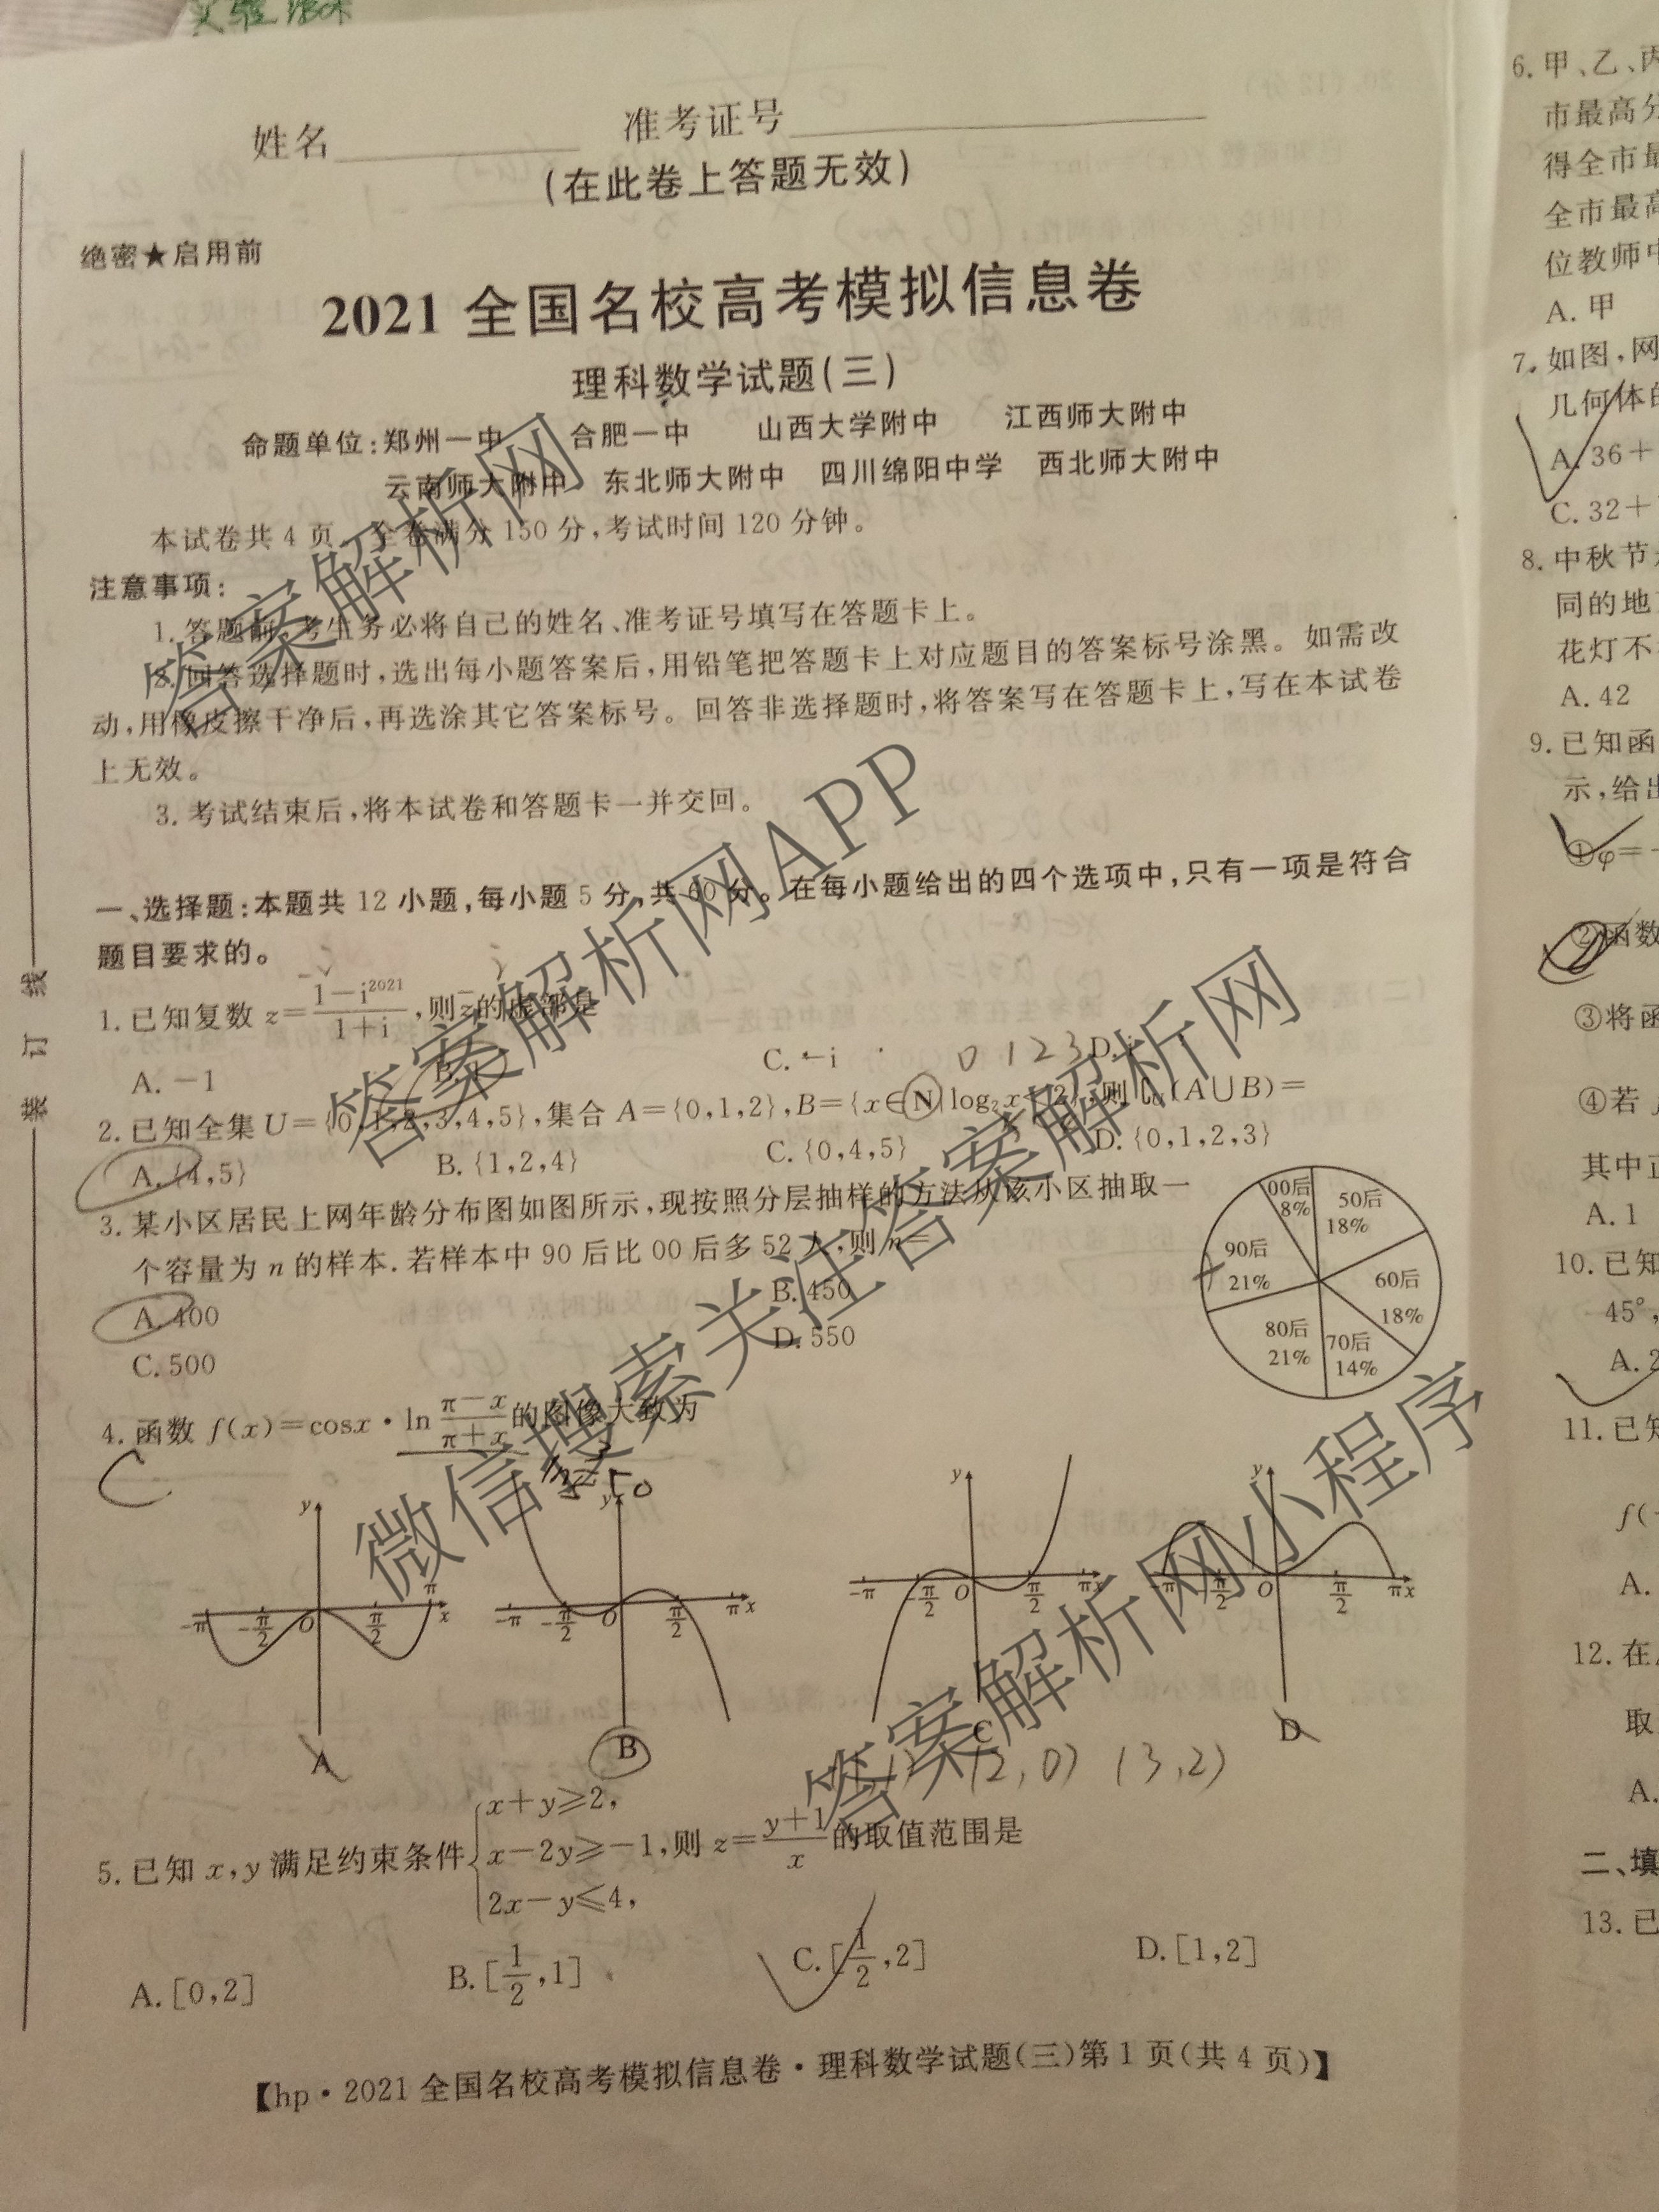 实验
姓名 准考证号
(在此卷上答题无效)
绝密★启用前
2021 全国名校高考模拟信息卷
理科数学试题(三)
命题单位:郑州一中 合肥一中 山西大学附中 江西师大附中
云南师大附中 东北师大附中 四川绵阳中学 西北师大附中
本试卷共 4 页。全卷满分 150 分,考试时间 120 分钟。
注意事项:
1. 答题前,考生务必将自己的姓名、准考证号填写在答题卡上。
2. 回答选择题时,选出每小题答案后,用铅笔把答题卡上对应题目的答案标号涂黑。如需改
动,用橡皮擦干净后,再选涂其它答案标号。回答非选择题时,将答案写在答题卡上,写在本试卷
上无效。
3. 考试结束后,将本试卷和答题卡一并交回。
一、选择题:本题共 12 小题,每小题 5 分,共 60 分。在每小题给出的四个选项中,只有一项是符合
题目要求的。
1. 已知复数 z=(1-i²⁰²¹)/(1+i),则z̄的虚部是
A. -1 B. 1 C. -i D. i
0 1 2 3
2. 已知全集 U={0,1,2,3,4,5},集合 A={0,1,2},B={x∈N|log₂x<2},则∁ᵤ(A∪B)=
A. {4,5} B. {1,2,4} C. {0,4,5} D. {0,1,2,3}
3. 某小区居民上网年龄分布图如图所示,现按照分层抽样的方法从该小区抽取一
个容量为 n 的样本. 若样本中 90 后比 00 后多 52 人,则 n=
A. 400 B. 450
C. 500 D. 550
00后 8%
50后 18%
90后 21%
60后 18%
80后 21%
70后 14%
4. 函数 f(x)=cosx·ln (π-x)/(π+x) 的图像大致为
C
y -π -π/2 O π/2 π x
y -π -π/2 O π/2 π x
y -π -π/2 O π/2 π x
y -π -π/2 O π/2 π x
A B C D
(1,1) (2,0) (3,2)
5. 已知 x,y 满足约束条件{x+y≥2,
x-2y≥-1,则 z=(y+1)/x 的取值范围是
2x-y≤4,
A. [0,2] B. [1/2,1] C. [1/2,2] D. [1,2]
【hp·2021 全国名校高考模拟信息卷·理科数学试题(三)第 1 页(共 4 页)】
装 订 线
6. 甲、乙、丙
市最高分
得全市最
全市最高
位教师中
A. 甲
7. 如图,网
几何体的
A. 36+
C. 32+
8. 中秋节
同的地
花灯不
A. 42
9. 已知函
示,给出
①φ=-
②函数
③将函
④若 f
其中正
A. 1
10. 已知
45°,
A. 2
11. 已知
f(-
A.
12. 在
取
A.
二、填
13. 已
答案解析网
答案解析网APP
微信搜索关注答案解析网
答案解析网小程序